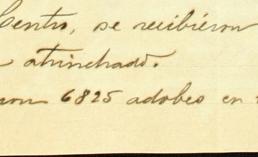 Centro, se recibieron
atrinchado.
on 6825 adobes en